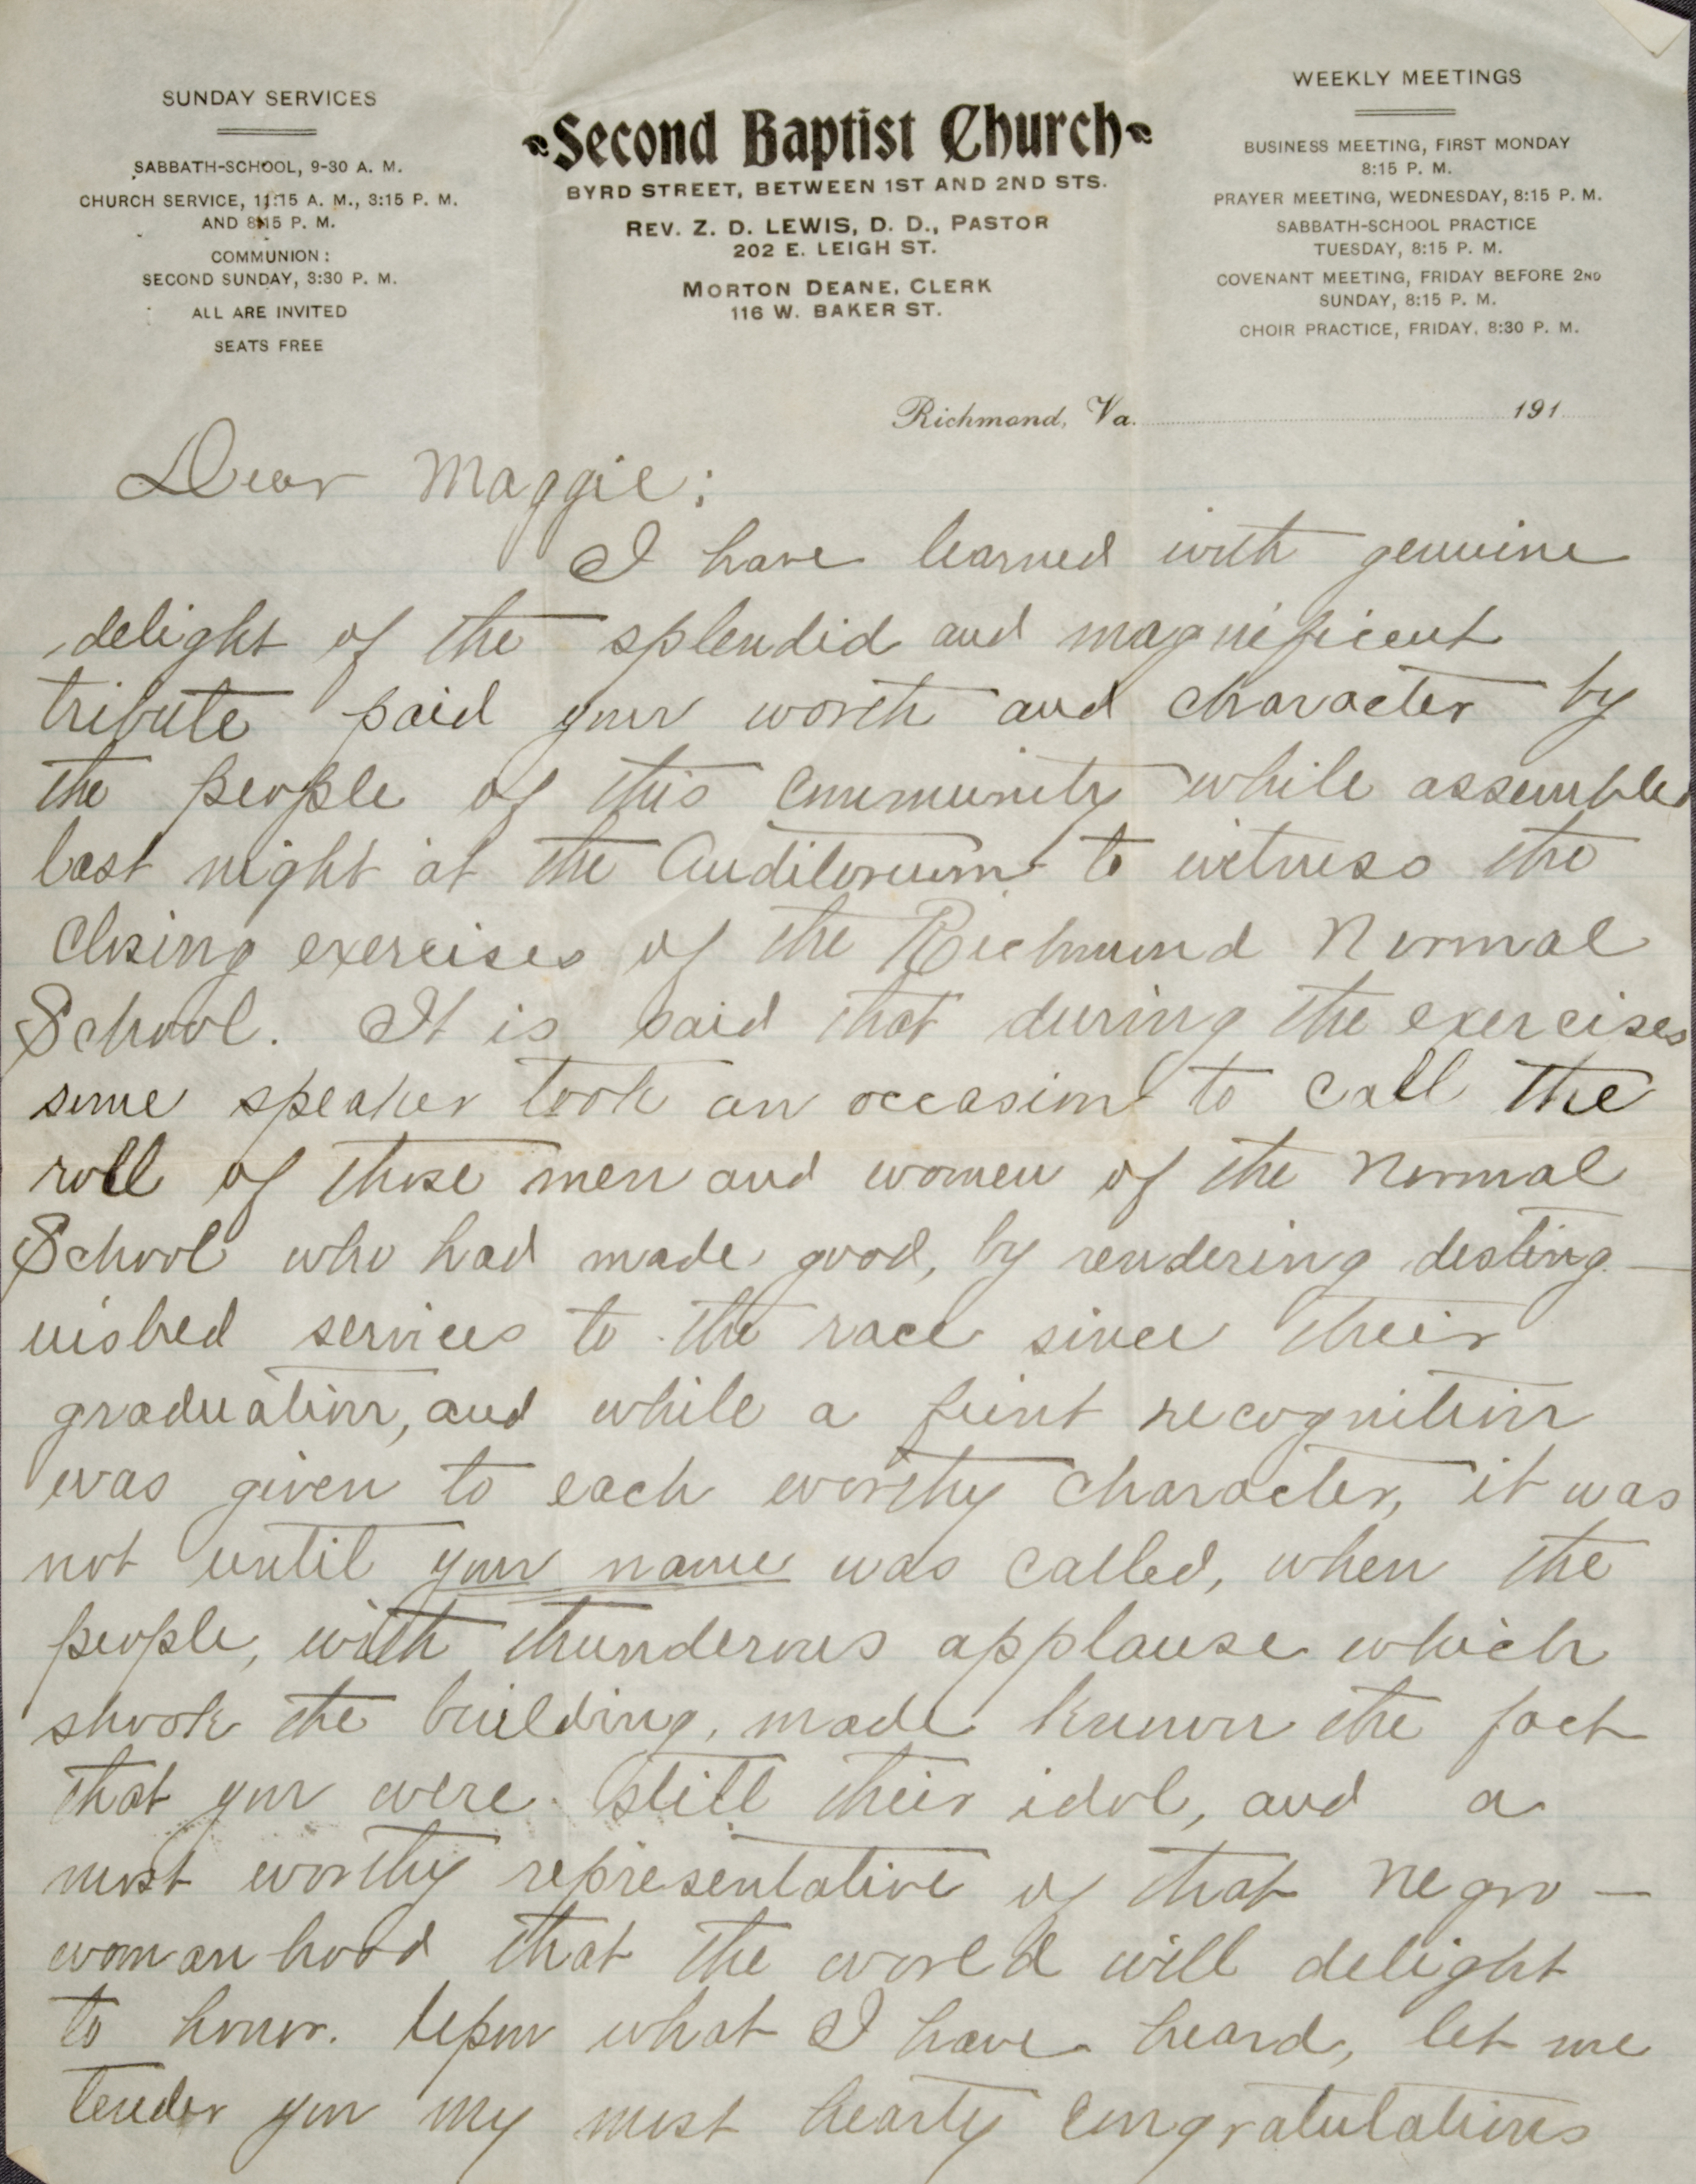 SUNDAY SERVICES
SABBATH-SCHOOL, 9-30 A. M.
CHURCH SERVICE, 11:15 A. M., 3:15 P. M.
AND 8:15 P. M.
COMMUNION:
SECOND SUNDAY, 3:30 P. M.
ALL ARE INVITED
SEATS FREE
Second Baptist Church
BYRD STREET, BETWEEN 1ST AND 2ND STS.
REV. Z. D. LEWIS, D. D., PASTOR
202 E. LEIGH ST.
MORTON DEANE, CLERK
116 W. BAKER ST.
WEEKLY MEETINGS
BUSINESS MEETING, FIRST MONDAY
8:15 P. M.
PRAYER MEETING, WEDNESDAY, 8:15 P. M.
SABBATH-SCHOOL PRACTICE
TUESDAY, 8:15 P. M.
COVENANT MEETING, FRIDAY BEFORE 2ND
SUNDAY, 8:15 P. M.
CHOIR PRACTICE, FRIDAY, 8:30 P. M.
Richmond, Va. 191
Dear Maggie:
I have learned with genuine
delight of the splendid and magnificent
tribute paid your worth and character by
the people of this community while assembled
last night at the Auditorium to witness the
closing exercises of the Richmond Normal
School. It is said that during the exercises
some speaker took an occasion to call the
roll of those men and women of the Normal
School who had made good, by rendering disting-
uished services to the race since their
graduation, and while a feint recognition
was given to each worthy character, it was
not until your name was called, when the
people, with thunderous applause which
shook the building, made known the fact
that you were still their idol, and a
most worthy representative of that Negro-
womanhood that the world will delight
to honor. Upon what I have heard, let me
tender you my most hearty congratulations